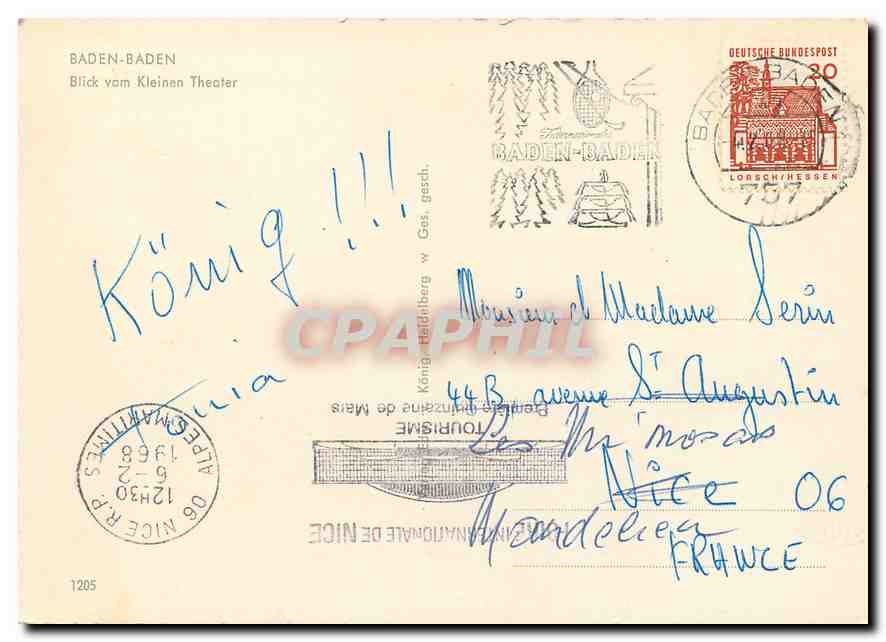 BADEN-BADEN
Blick vom Kleinen Theater
DEUTSCHE BUNDESPOST
20
LORSCH/HESSEN
BADEN-BADEN
757
BADEN-BADEN
König!!!
Xonia
König, Heidelberg w Ges. gesch.
CPAPHIL
Monsieur et Madame Serin
44B avenue St Augustin
Les Mimosas
Nice 06
Mandelieu
FRANCE
06 NICE R.P. ALPES-MARITIMES
12H30
6-2
1968
FOIRE INTERNATIONALE DE NICE
TOURISME
Première Quinzaine de Mars
1205